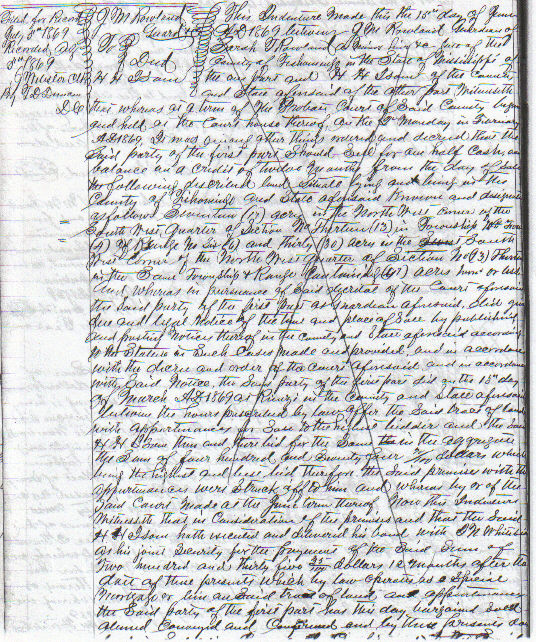 Filed for Record
July 8th 1869
Recorded July
8th 1869
J M Rowland
Guard
W P
Deed
H H Isom
This Indenture Made this 15th day of June
AD 1869 between J M Rowland Guardian of
Sarah T Rowland a Minor
County of Tishomingo in the State of Mississippi of
the one part and H H Isom of the County
and State aforesaid of the other part Witnesseth
that whereas at a term of the Probate Court of Said County begun
and held at the Court house thereof, on the 2nd Monday in
AD 1869 It was among other things ordered and decreed that the
Said party of the first part Should Sell for one half Cash and
balance on a credit of twelve months from the day of Sale
the following described land Situate lying and being in the
County of Tishomingo and State aforesaid Known and designated
as follows Seventeen (17) acres in the North West Corner of the
South West Quarter of Section No Thirteen (13) in Township No
of Range No Six (6) and thirty (30) acres in the South
West Corner of the North West Quarter of Section No (13) Thirteen
in the Same Township & Range Containing (47) acres more or less
And Whereas in pursuance of Said decretal of the Court aforesaid
the Said party of the first part as guardian aforesaid, did give
due and legal Notice of the time and place of Sale by publishing
and posting Notices thereof in the County and State aforesaid according
to the Statute in Such Case Made and provided, and in accordance
with the decree and order of the Court aforesaid and in accordance
with Said Notice, the Said party of the first part did on the 15th day
of March AD 1869 at Rienzi in the County and State aforesaid
between the hours prescribed by law offer the Said tract of land
with appurtenances for Sale to the highest bidder and the Said
H H Isom then and there bid for the Same in the aggregate
the Sum of four hundred and Seventy dollars which
being the highest and best bid therefor the Said premises with the
appurtenances were Struck off to him and whereas by or of the
Said Court Made at the June term thereof Now this Indenture
Witnesseth that in Consideration of the premises and that the Said
H H Isom hath executed and delivered his bond with
as his joint Security for the payment of the Said Sum of
Two hundred and thirty five dollars 12 months after the
date of these presents which by law operates as a Special
Mortgage or lien on Said tract of land and appurtenances
the Said party of the first part has this day bargained Sold
aliened Conveyed and Confirmed and by these presents does